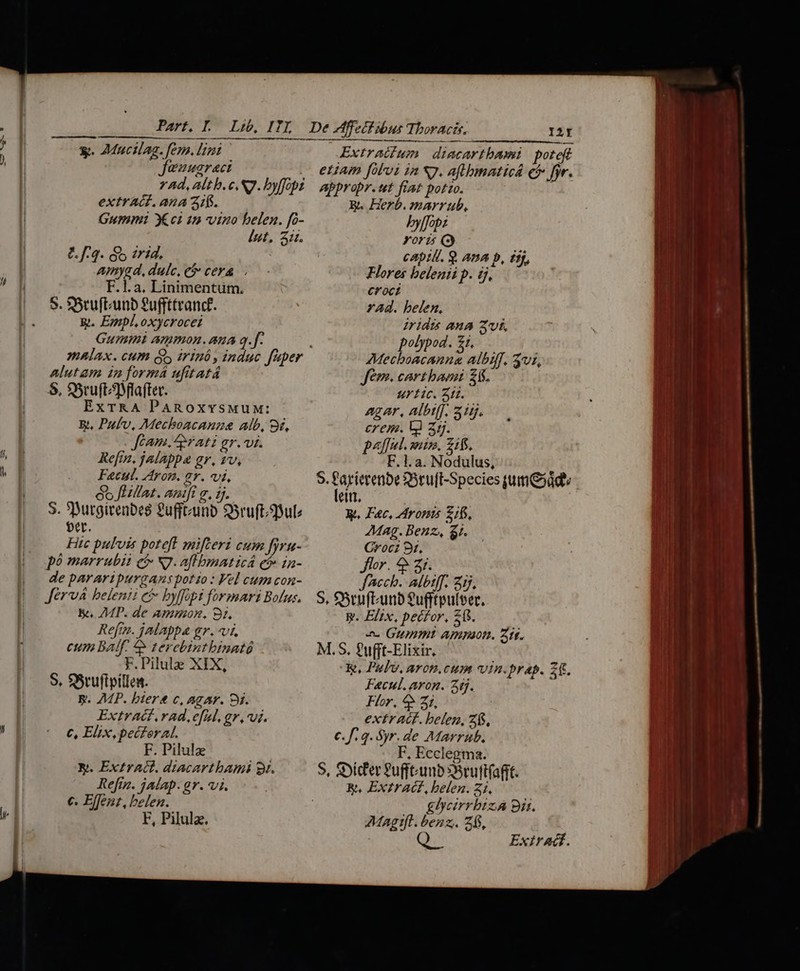 Part. I. Lib, III. De Affectibus Thoracis. 121
℞. Mucilag. sem. lini
fœnugræci
rad, alth. c. ▽. hyssopi
extract. ana ʒiß.
Gummi ci in vino helen. so-
lut, ʒii.
irid,
amygd, dulc. & cera
F. l. a. Linimentum.
S. Brust-und Lufftranck.
℞. Empl, oxycrocei
Gummi ammon. ana q. s.
malax. cum irinô, induc super
alutam in formâ usitatâ
S. Brust-Pflaster.
EXTRA PAROXYSMUM:
℞, Pulv, Mechoacannæ alb, ℈i,
scam. rati gr. vi.
Resin. jalappæ gr, iv,
Facul. Aron. gr. vi,
stillat. anisi g. ij.
S. Purgirendes Lufft-und Brust-Pul-
ver.
Hic pulvis potest misceri cum syru-
pô marrubii & ▽. asthmaticâ & in-
de parari purgans potio: Vel cum con-
servâ helenii & hyssopi formari Bolus.
℞. MP. de ammon. ℈i.
Resin. jalappæ gr. vi,
cum Bals. terebinthinatô
F. Pilulæ XIX,
S. Brustpillen.
℞. MP. hieræ c, agar. ℈i.
Extract. rad. esul. gr. vi.
c, Elix, pectoral.
F. Pilulæ
℞. Extract. diacarthami ℈i.
Resin. jalap. gr. vi.
c. Essent, helen.
F, Pilulæ.
Extractum diacarthami potest
etiam solvi in ▽. asthmaticâ & syr.
appropr. ut fiat potio.
℞. Herb. marrub,
hyssopi
roris ☉
capill. ♀ ana p. iij,
Flores helenii p. ij,
croci
rad. helen,
iridis ana ʒvi,
polypod. ʒi.
Mechoacannæ albiss. ʒvi,
sem. carthami ʒß.
urtic. ʒii.
agar, albiss. ʒiij.
crem. ʒij.
passul. min, ʒiß.
F. l. a. Nodulus,
S. Laxierende Brust-Species zum Säck-
lein.
℞. Fæc. Aronis ʒiß,
Mag. Benz, ʒi.
Croci ℈i,
flor. ʒi.
sacch. albiss. ʒij.
S, Brust-und Lufftpulver.
℞. Elix, pector. ʒß.
Gummi ammon. ʒii.
M. S. Lufft-Elixir.
℞, Pulv. aron. cum vin. præp. ʒß.
Facul. aron. ʒij.
Flor. ʒi,
extract. helen, ʒß,
c. s. q. Syr. de Marrub.
F. Ecclegma.
S, Dicker Lufft-und Brustsafft.
℞, Extract, helen. ʒi,
glycirrhiza ℈ii.
Magist. benz. ʒß,
Q Extract.